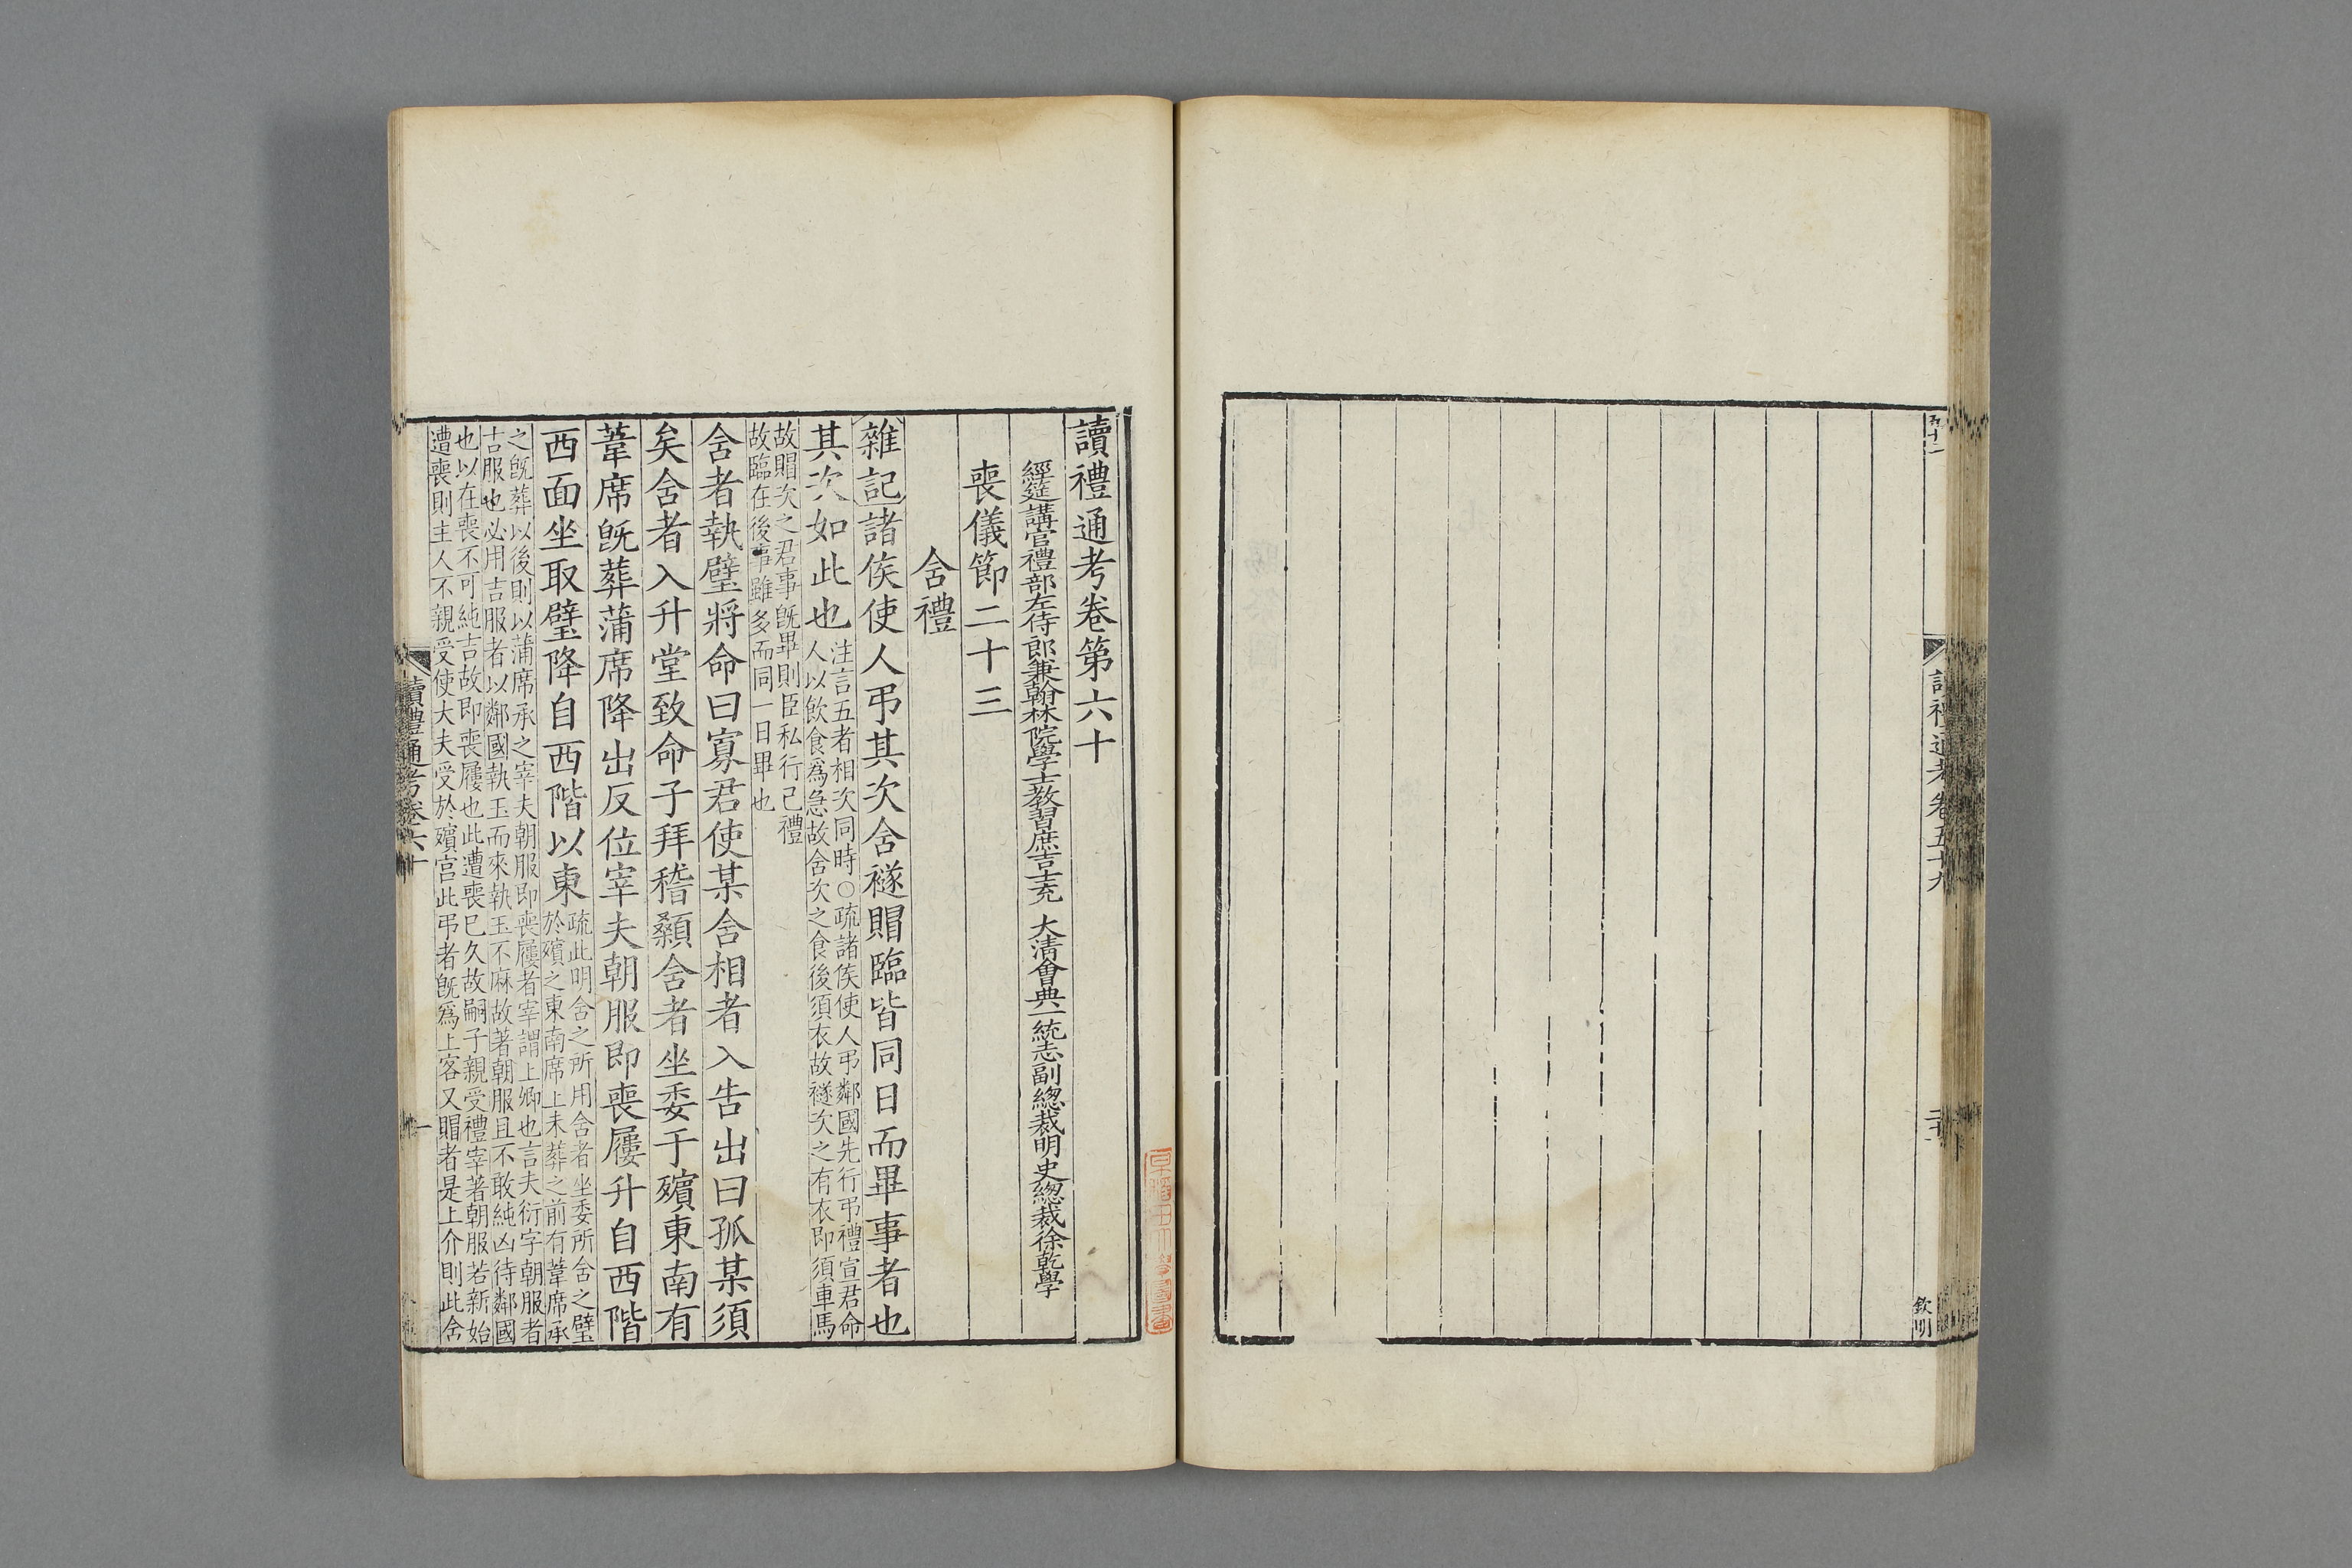 讀禮通考卷五十九
欽明
讀禮通考卷第六十
經筵講官禮部左侍郎兼翰林院學士教習庶吉士充 大清會典一統志副總裁明史總裁徐乾學
喪儀節二十三
含禮
雜記諸侯使人弔其次含襚賵臨皆同日而畢事者也
其次如此也
注言五者相次同時○疏諸侯使人弔鄰國先行弔禮宣君命
人以飲食爲急故含次之食後須衣故襚次之有衣即須車馬
故賵次之君事旣畢則臣私行己禮
故臨在後事雖多而同一日畢也
含者執璧將命曰寡君使某含相者入告出曰孤某須
矣含者入升堂致命子拜稽顙含者坐委于殯東南有
葦席旣葬蒲席降出反位宰夫朝服即喪屨升自西階
西面坐取璧降自西階以東
疏此明含之所用含者坐委所含之璧
於殯之東南席上未葬之前有葦席承
之旣葬以後則以蒲席承之宰夫朝服即喪屨者宰謂上卿也言夫衍字朝服者
吉服也必用吉服者以鄰國執玉而來執玉不麻故著朝服且不敢純凶待鄰國
也以在喪不可純吉故即喪屨也此遭喪已久故嗣子親受禮宰著朝服若新始
遭喪則主人不親受使大夫受於殯宮此弔者旣爲上客又賵者是上介則此含
讀禮通考卷六十
一
早稻田大學圖書